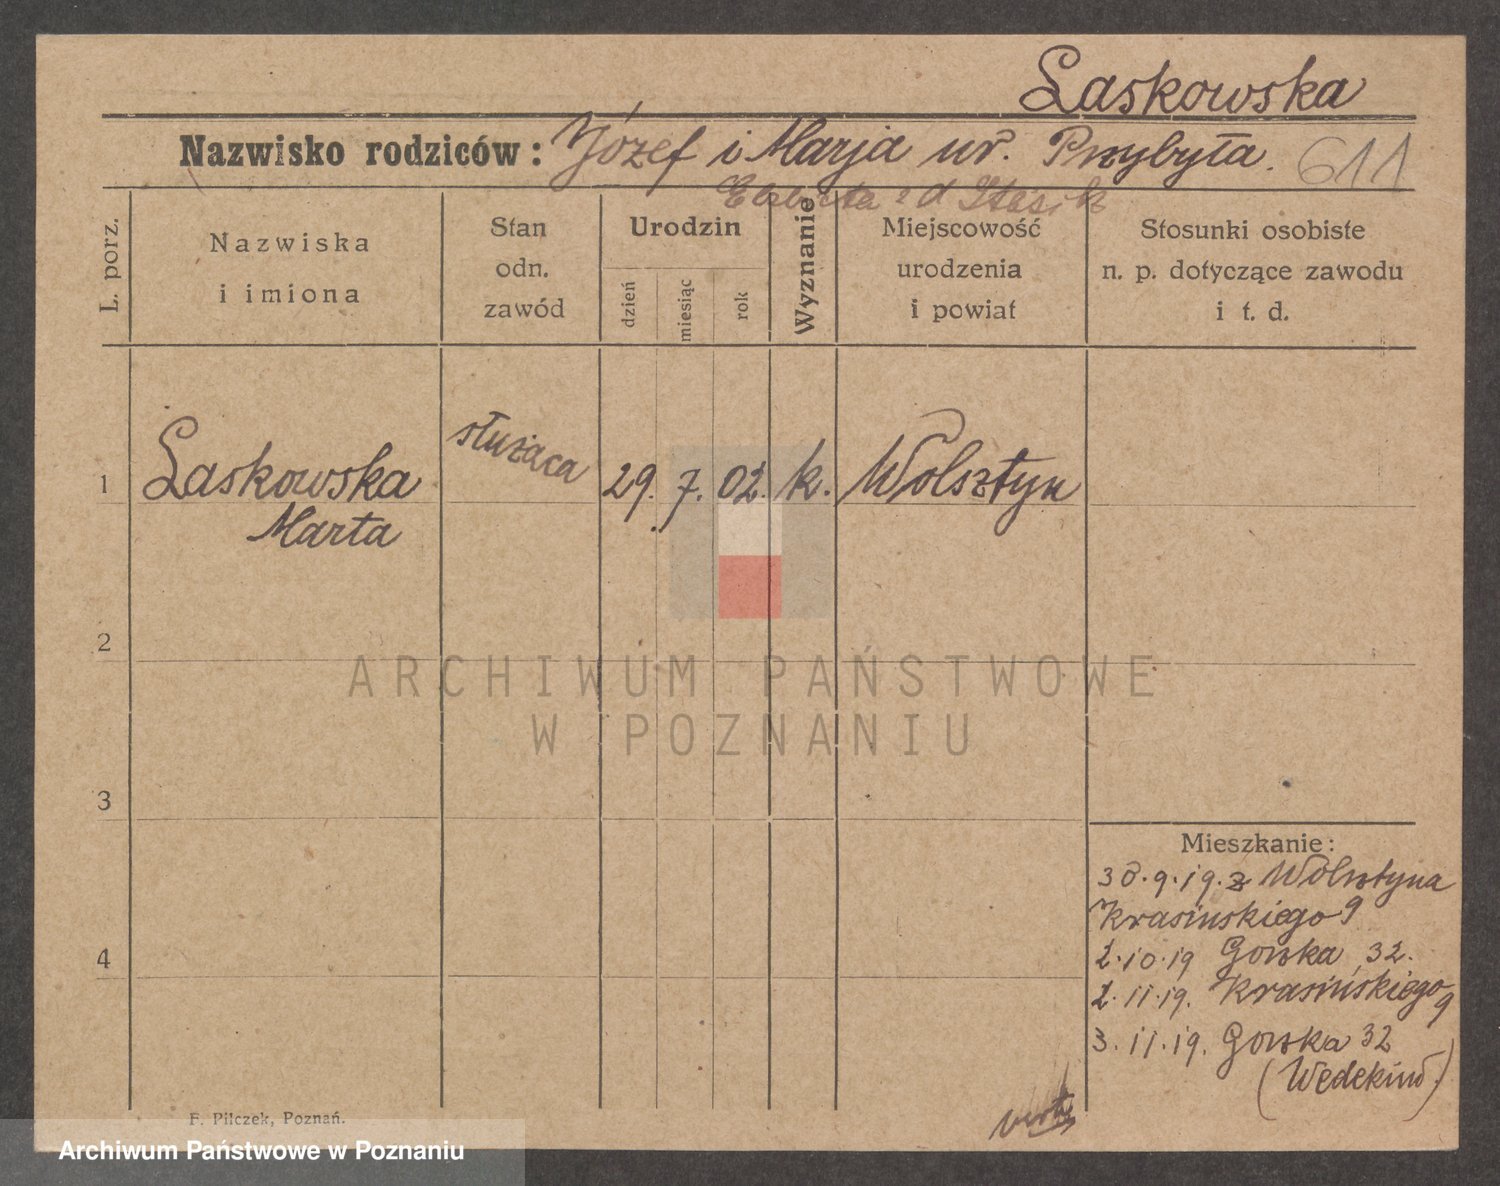 Laskowska
Nazwisko rodziców: Józef i Marja ur. Przybyła. 611
Elżbieta
L. porz.
Nazwiska
i imiona
Stan
odn.
zawód
Urodzin
dzień
miesiąc
rok
Wyznanie
Miejscowość
urodzenia
i powiat
Stosunki osobiste
n. p. dotyczące zawodu
i t. d.
1 Laskowska służąca 29. 7. 02. k. Wolsztyn
Marta
2
ARCHIWUM PAŃSTWOWE
W POZNANIU
3
4
Mieszkanie:
30.9.19. z Wolsztyna
Krasinskiego 9
2.10.19 Gorska 32.
2.11.19. Krasińskiego 9
3.11.19. Gorska 32
(Wedekind)
verte
F. Pilczek, Poznań.
Archiwum Państwowe w Poznaniu